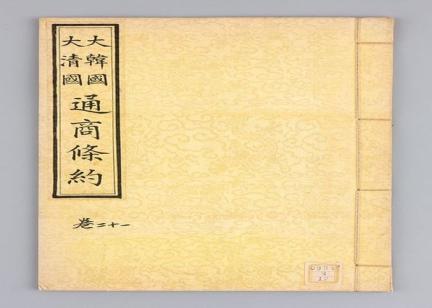 大韓國
大清國
通商條約
卷二十一